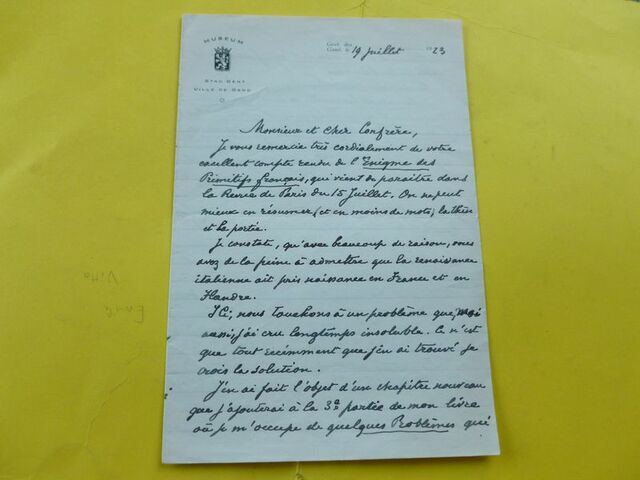 MUSEUM
STAD GENT
VILLE DE GAND
Gent den
Gand, le 19 juillet 1923
Monsieur et cher Confrère,
Je vous remercie très cordialement de votre
excellent compte rendu de l'Enigme des
Primitifs français, qui vient de paraître dans
la Revue de Paris du 15 Juillet. On ne peut
mieux en résumer, et en moins de mots, la thèse
et la portée.
Je constate, qu'avec beaucoup de raison, vous
avez de la peine à admettre que la renaissance
italienne ait pris naissance en France et en
Flandre.
Ici, nous touchons à un problème que, moi
aussi, j'ai cru longtemps insoluble. Ce n'est
que tout récemment que j'en ai trouvé je
crois la solution.
J'en ai fait l'objet d'un chapitre nouveau
que j'ajouterai à la 3e partie de mon livre
où je m'occupe de quelques Problèmes qui